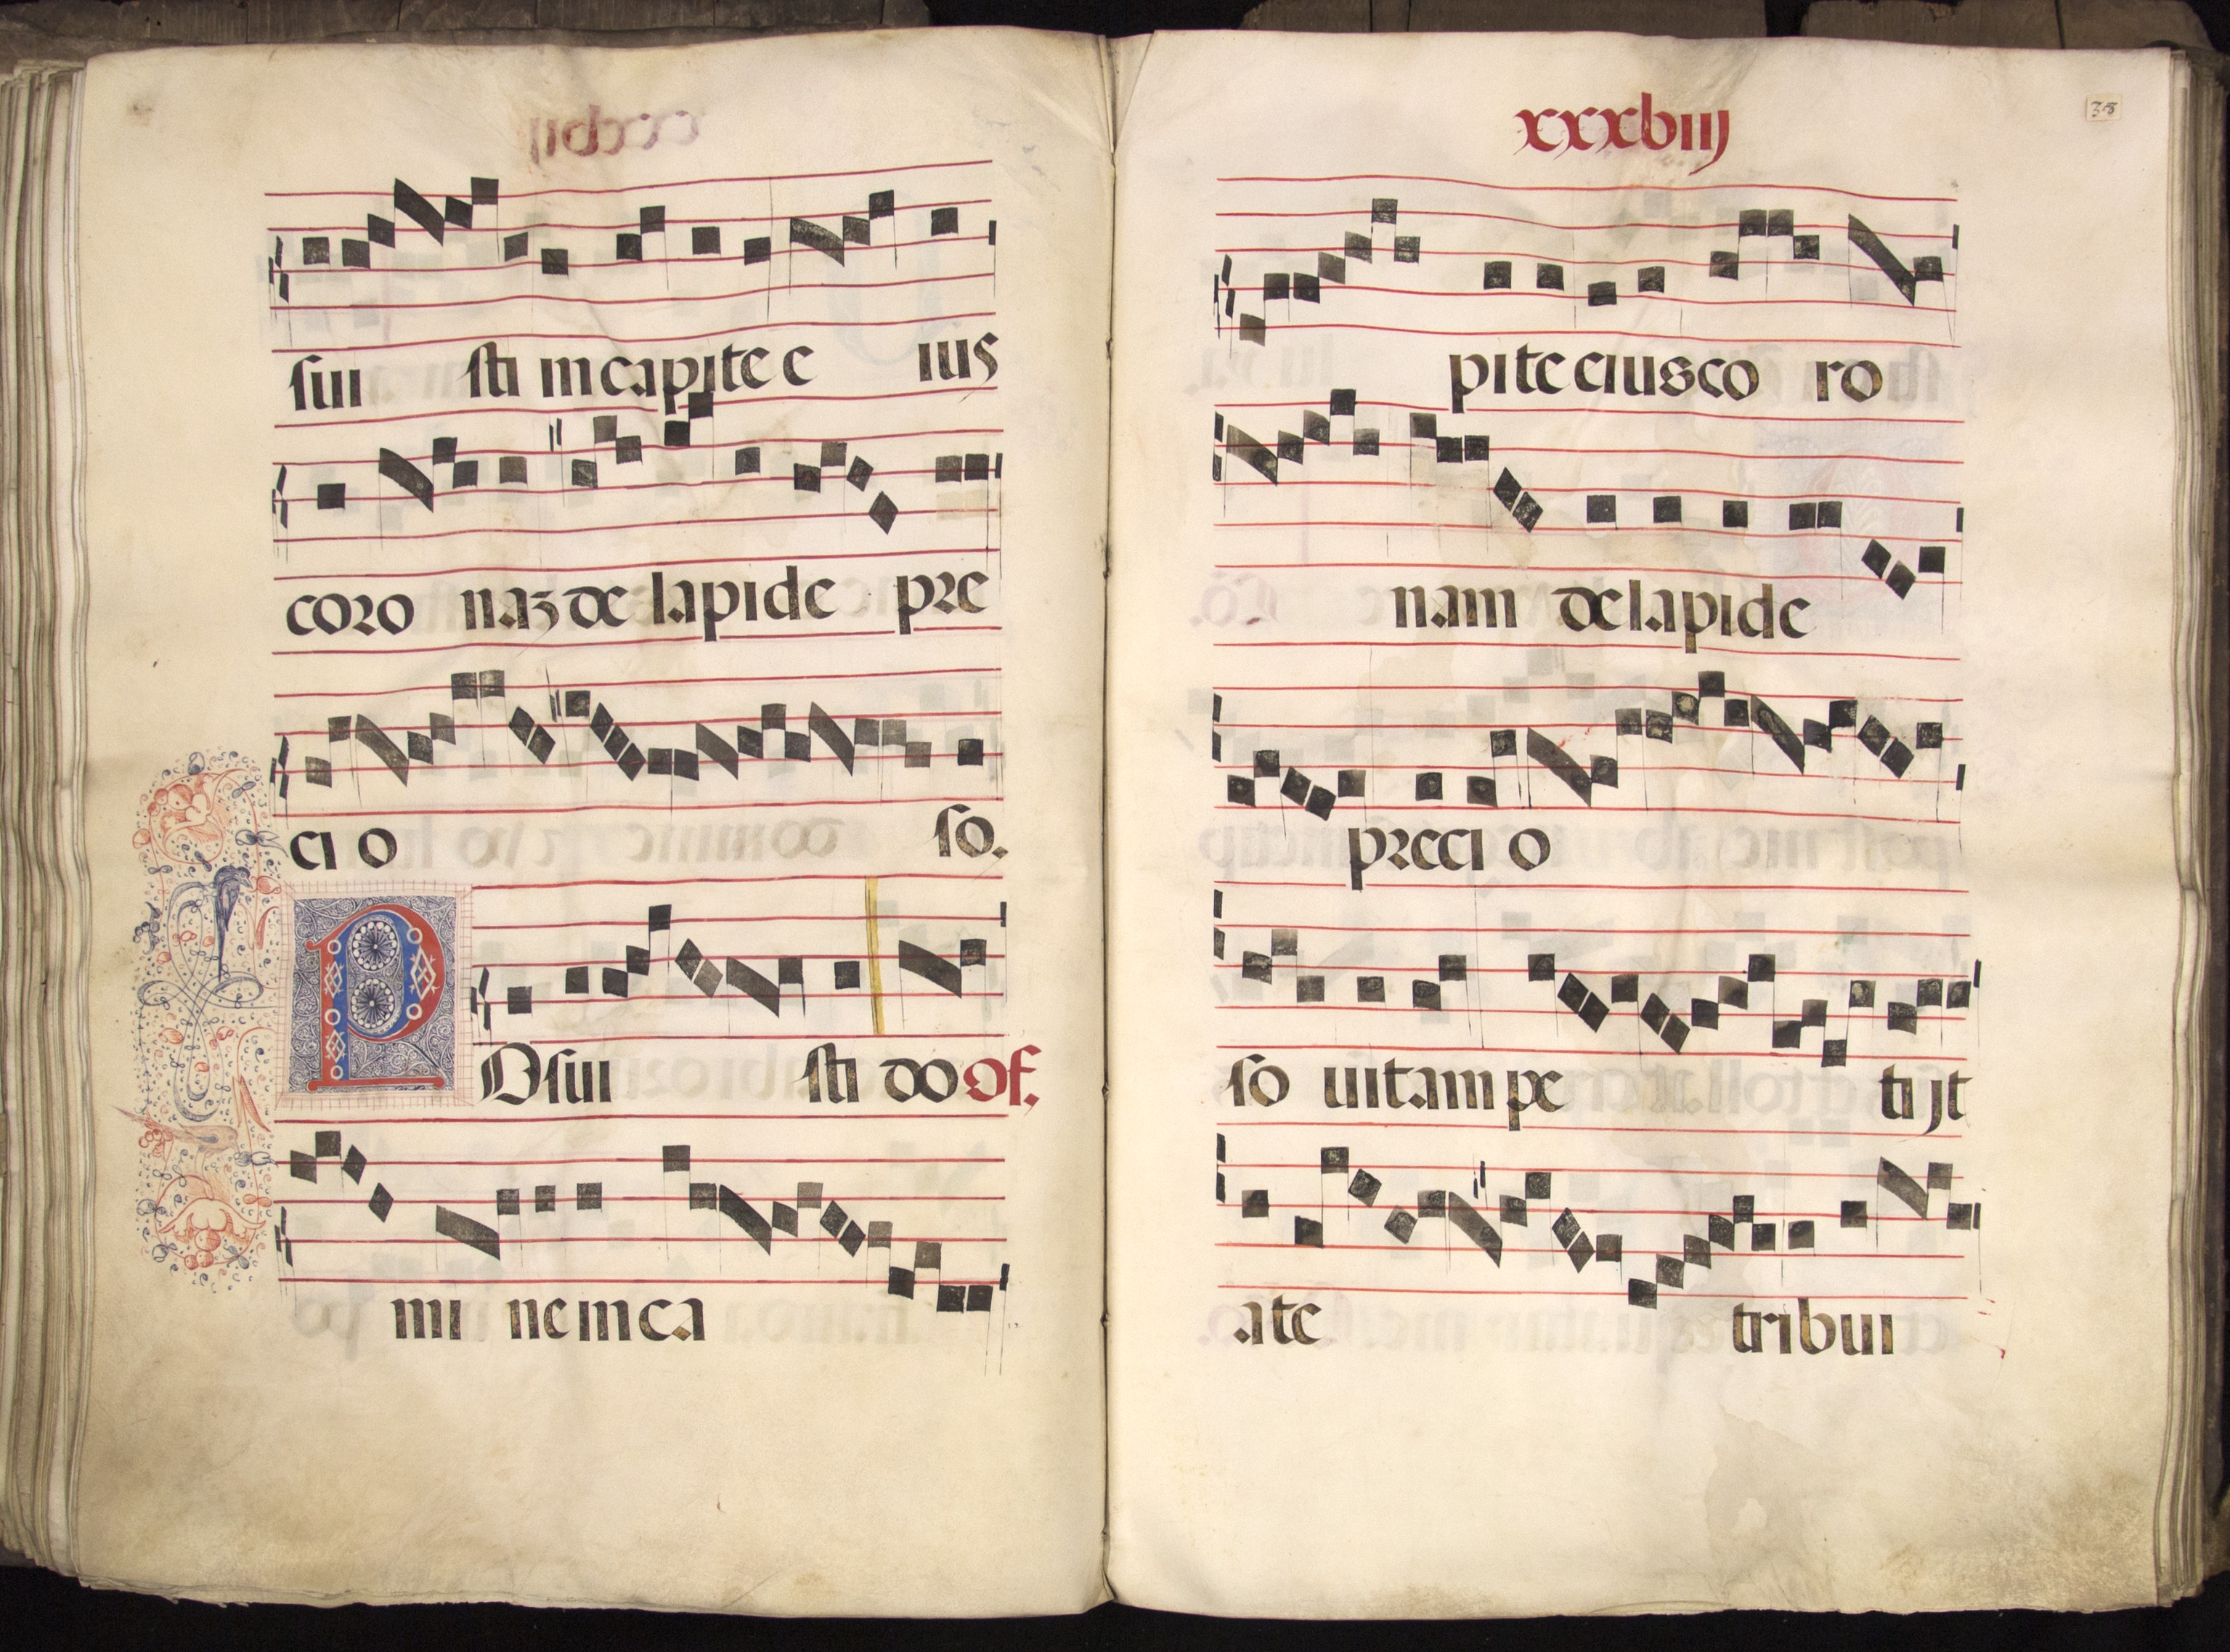 sui sti in capite e ius
coro naz de lapide pre
ci o so.
POsui sti do of.
mi ne in ca
xxxbiij
38
pite eius co ro
nam de lapide
preci o
so uitam pe tijt
ate tribui